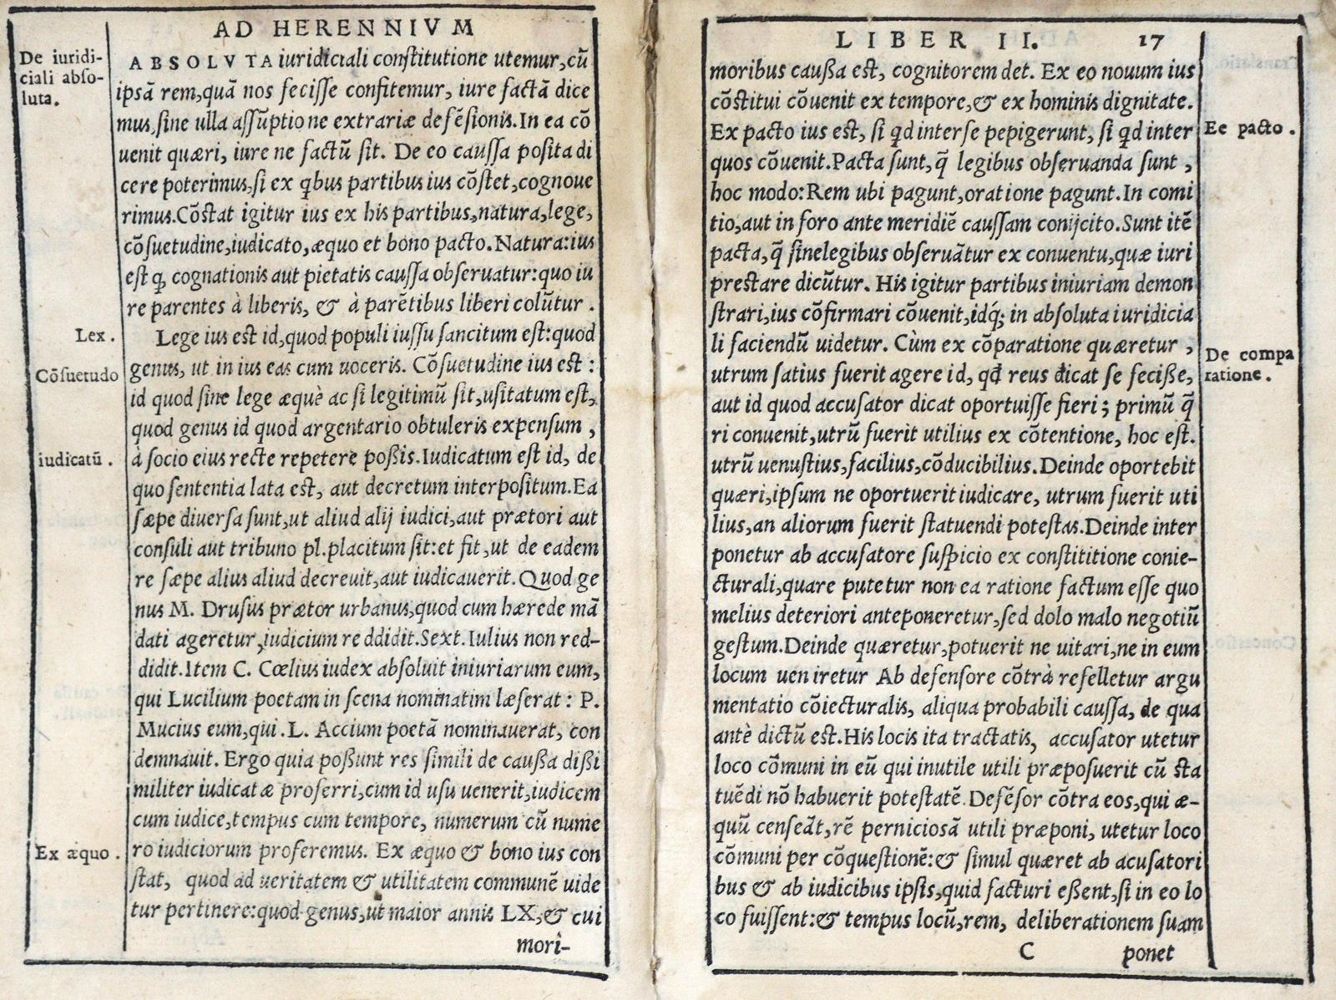 AD HERENNIVM
De iuridi-
ciali abso-
luta.
ABSOLVTA iuridiciali constitutione utemur, cũ
ipsã rem, quã nos fecisse confitemur, iure factã dice
mus, sine ulla assũptione extrariæ defẽsionis. In ea cõ
uenit quæri, iure ne factũ sit. De eo caussa posita di
cere poterimus, si ex q̃bus partibus ius cõstet, cognoue
rimus. Cõstat igitur ius ex his partibus, natura, lege,
cõsuetudine, iudicato, æquo et bono pacto. Natura: ius
est q, cognationis aut pietatis caussa obseruatur: quo iu
re parentes à liberis, & à parẽtibus liberi colũtur.
Lex.
Lege ius est id, quod populi iussu sancitum est: quod
genus, ut in ius eas cum uoceris. Cõsuetudine ius est:
Cõsuetudo
id quod sine lege æquè ac si legitimũ sit, usitatum est,
quod genus id quod argentario obtuleris expensum,
iudicatũ.
à socio eius recte repetere poßis. Iudicatum est id, de
quo sententia lata est, aut decretum interpositum. Ea
sæpe diuersa sunt, ut aliud alij iudici, aut prætori aut
consuli aut tribuno pl. placitum sit: et fit, ut de eadem
re sæpe alius aliud decreuit, aut iudicauerit. Quod ge
nus M. Drusus prætor urbanus, quod cum hærede mã
dati ageretur, iudicium reddidit. Sext. Iulius non red-
didit. Item C. Cœlius iudex absoluit iniuriarum eum,
qui Lucilium poetam in scena nominatim læserat: P.
Mucius eum, qui. L. Accium poetã nominauerat, con
demnauit. Ergo quia poßunt res simili de caußa dißi
militer iudicatæ proferri, cum id usu uenerit, iudicem
cum iudice, tempus cum tempore, numerum cũ nume
Ex æquo.
ro iudiciorum proferemus. Ex æquo & bono ius con
stat, quod ad ueritatem & utilitatem communẽ uide
tur pertinere: quod genus, ut maior annis LX, & cui
mori-
LIBER II. 17
moribus caußa est, cognitorem det. Ex eo nouum ius
cõstitui cõuenit ex tempore, & ex hominis dignitate.
Ex pacto ius est, si qd inter se pepigerunt, si qd inter
Ee pacto.
quos cõuenit. Pacta sunt, q̃ legibus obseruanda sunt,
hoc modo: Rem ubi pagunt, oratione pagunt. In comi
tio, aut in foro ante meridiẽ caussam conijcito. Sunt itẽ
pacta, q̃ sine legibus obseruãtur ex conuentu, quæ iuri
prestare dicũtur. His igitur partibus iniuriam demon
strari, ius cõfirmari cõuenit, idq́; in absoluta iuridicia
li faciendũ uidetur. Cùm ex cõparatione quæretur,
De compa
ratione.
utrum satius fuerit agere id, qd reus dicat se feciße,
aut id quod accusator dicat oportuisse fieri; primũ q̃
ri conuenit, utrũ fuerit utilius ex cõtentione, hoc est.
utrũ uenustius, facilius, cõducibilius. Deinde oportebit
quæri, ipsum ne oportuerit iudicare, utrum fuerit uti
lius, an aliorum fuerit statuendi potestas. Deinde inter
ponetur ab accusatore suspicio ex constititione conie-
cturali, quare putetur non ea ratione factum esse quo
melius deteriori anteponeretur, sed dolo malo negotiũ
gestum. Deinde quæretur, potuerit ne uitari, ne in eum
locum uen iretur Ab defensore cõtrà refelletur argu
mentatio cõiecturalis, aliqua probabili caussa, de qua
antè dictũ est. His locis ita tractatis, accusator utetur
loco cõmuni in eũ qui inutile utili præposuerit cũ sta
tuẽdi nõ habuerit potestatẽ. Defẽsor cõtra eos, qui æ-
quũ censeãt, rẽ perniciosã utili præponi, utetur loco
cõmuni per cõquestionẽ: & simul quæret ab acusatori
bus & ab iudicibus ipsis, quid facturi eßent, si in eo lo
co fuissent: & tempus locũ, rem, deliberationem suam
C ponet